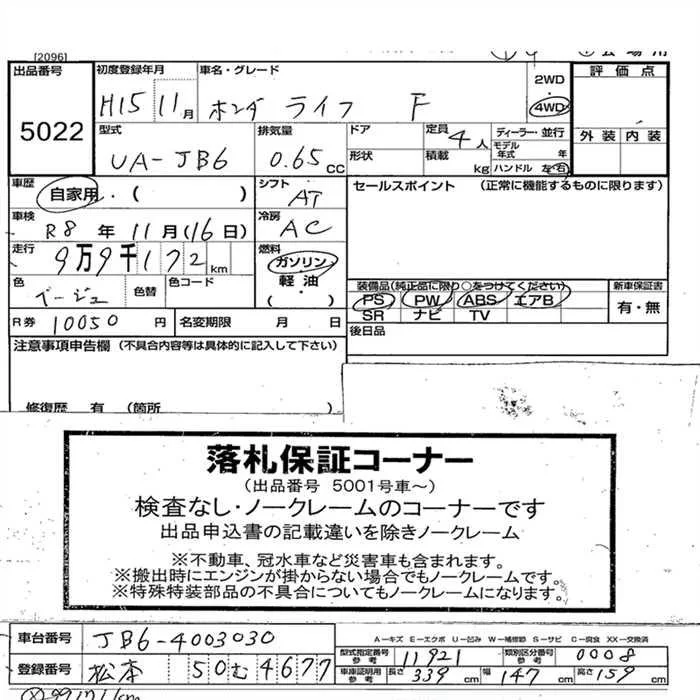 [2096]
出品番号 5022
初度登録年月 H15 11月
車名・グレード ホンダ ライフ F
2WD
4WD
評価点
外装 内装
型式 UA-JB6
排気量 0.65 CC
ドア
形状
定員 4人
積載 kg
ディーラー・並行
モデル年式 年
ハンドル 左・右
車歴 自家用・( )
シフト AT
セールスポイント (正常に機能するものに限ります)
車検 R8年 11月(16日)
冷房 AC
走行 9万9千172km
燃料 ガソリン
軽油
( ・ )
色 ベージュ
色替
色コード
装備品(純正品に限り○をつけてください)
PS PW ABS エアB
SR ナビ TV
新車保証書
有・無
R券 10050円
名変期限 月 日
後日品
注意事項申告欄(不具合内容等は具体的に記入して下さい)
修復歴 有 (箇所 )
落札保証コーナー
(出品番号 5001号車~)
検査なし・ノークレームのコーナーです
出品申込書の記載違いを除きノークレーム
※不動車、冠水車など災害車も含まれます。
※搬出時にエンジンが掛からない場合でもノークレームです。
※特殊特装部品の不具合についてもノークレームになります。
車台番号 JB6-4003030
A-キズ E-エクボ U-凹み W-補修跡 S-サビ C-腐食 XX-交換済
型式指定番号 参考 11921
類別区分番号 参考 0008
登録番号 松本 50む4677
車車証明用 参考 長さ 339cm 幅 147cm 高さ 159cm